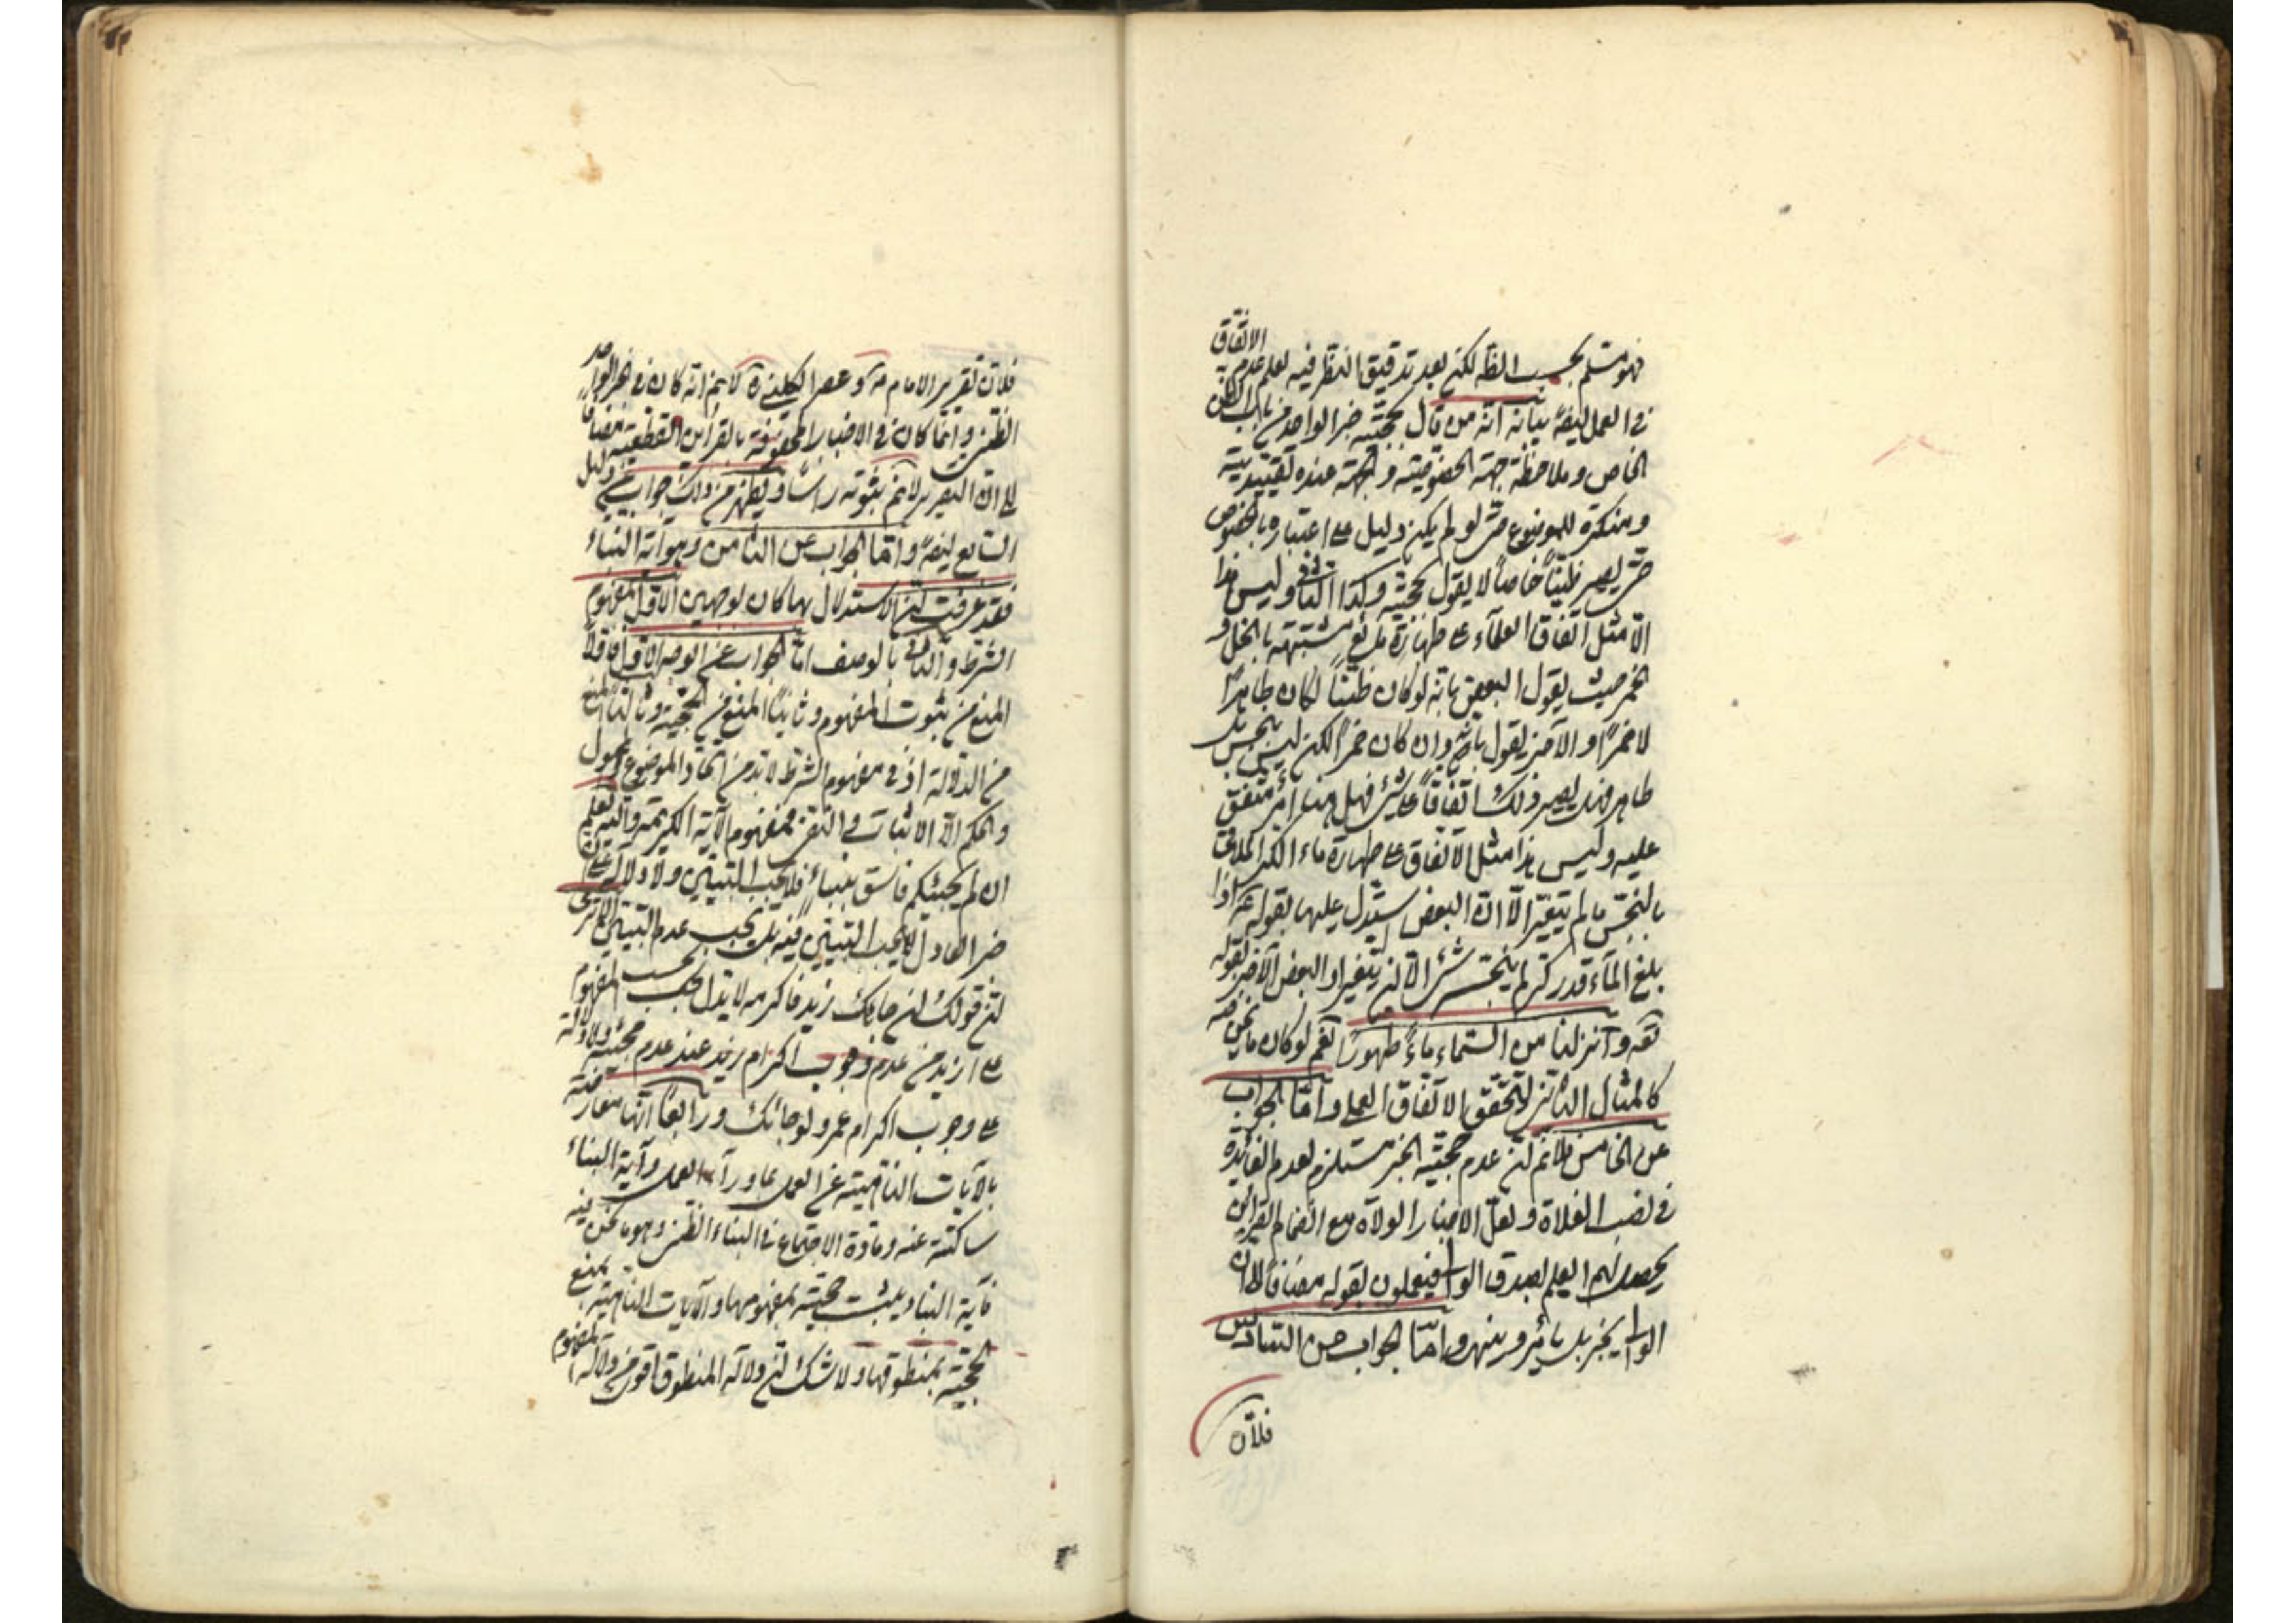 فهو مسلم بحسب الظه لكن بعد تدقيق النظر فيه لعلم عدم الاتفاق
في العمل ايضا بيانه انه من قال بحجية خبر الواحد من باب الظن
الخاص وملاحظة جهة الخصوصية والجهة عنده تقييدية
ومنكرة للموضوع حتى لو لم يكن دليل على اعتباره بالخصوص
حتى يصير ظنيا خاصا لا يقول بحجيته وكذا الثاني وليس هذا
الا مثل اتفاق العلماء على طهارة مايع مشتبه بالخل و
الخمر حيث يقول البعض بانه لو كان ظنيا لكان طاهرا
لا خمرا والآخر يقول بانه وان كان خمرا لكن ليس بنجس بل
طاهر فهل يصير ذلك اتفاقا على شئ فهل هنا امر متفق
عليه وليس هذا مثل الاتفاق على طهارة ماء الكر الملاقي
بالنجس ما لم يتغير الا ان البعض يستدل عليها بقوله ع اذا
بلغ الماء قدر كر لم ينجسه شئ الا ان يتغير او البعض الآخر بقوله
تعه وانزلنا من السماء ماء طهورا نعم لو كان ما نحن فيه
كالمثال الثاني لتحقق الاتفاق العملي واما الجواب
عن الخامس فلانم ان عدم حجية الخبر مستلزم لعدم الفايدة
في نصب الولاة ولعل الاخبار الولاة مع انضمام القراين
يحصل لهم العلم بصدق الوالى فيعملون بقوله مضافا الى ان
الوالى يخبر بل يأمر وينهر واما الجواب عن السادس
فلان
فلان تقرير الامام ع وعصر الكليني ره لا نم انه كان في الخبر الواحد
الظني وانما كان في الاخبار المحفوفة بالقراين القطعية مضافا
الى ان التقرير لا نم بثبوته راسا ويظهر من ذلك جواب عن دليل
السابع ايضا واما الجواب عن الثامن وهو آية النباء
فقد عرفت ان الاستدلال بها كان لوجهين الاول بمفهوم
الشرط والثاني بالوصف اما الجواب عن الوجه الاول فاولا
المنع من ثبوت المفهوم وثانيا المنع من الحجية وثالثا المنع
من الدلالة اذ في مفهوم الشرط لا بد من اتحاد الموضوع والمحمول
والحكم الا الاثبات والنفي فمفهوم الآية الكريمة والله يعلم
ان لم يجئكم فاسق بنباء فلا يجب التبين ولا دلالة على ان
خبر العادل لا يجب التبين فيه بل يجب عدم التبين الا ترى
ان قولك ان جائك زيد فاكرمه لا يدل بحسب المفهوم
على ازيد من عدم وجوب اكرام زيد عند عدم مجيئه ولا دلالة
على وجوب اكرام عمرو لو جائك ورابعا انها معارضة
بالآيات الناهية عن العمل بما وراء العلم وآية النباء
ساكتة عنه ومادة الاجتماع في النباء الظني وهو ما نحن فيه
فآية النباء يثبت حجيته بمفهومها والآيات الناهية يمنع
الحجية بمنطوقها ولا شك ان دلالة المنطوق اقوى من دلالة المفهوم